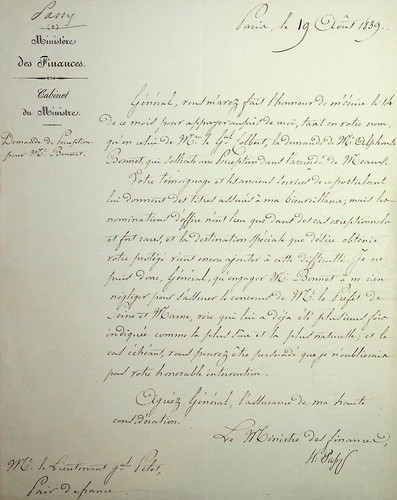 Passy
Ministère
des Finances.
Cabinet
du Ministre.
Demande de Perception
pour Mr. Bonnet.
Paris, le 19 Août 1839.
Général, vous m'avez fait l'honneur de m'écrire le
de ce mois pour appuyer auprès de moi, tant en votre nom,
qu'en celui de Mr. le Gal. Colbert, la demande de Mr. Alphonse
Bonnet, qui sollicite une Perception dans l'arrondt. de Meaux.
Votre témoignage et les anciens services de ce postulant
lui donnent des titres assurés à ma bienveillance; mais les
nominations d'office n'ont lieu que dans des cas exceptionnels
et fort rares, et la destination spéciale que désire obtenir
votre protégé vient encore ajouter à cette difficulté. Je ne
puis donc, Général, qu'engager Mr. Bonnet à ne rien
négliger pour s'assurer le concours de Mr. le Préfet de
Seine et Marne, voie qui lui a déjà été plusieurs fois
indiquée comme la plus sûre et la plus naturelle; et le
cas échéant, vous pouvez être persuadé que je n'oublierai
pas votre honorable intervention.
Agréez, Général, l'assurance de ma haute
considération.
Le Ministre des finances,
H. Passy
Mr. le Lieutenant gal. Petit,
Pair de france